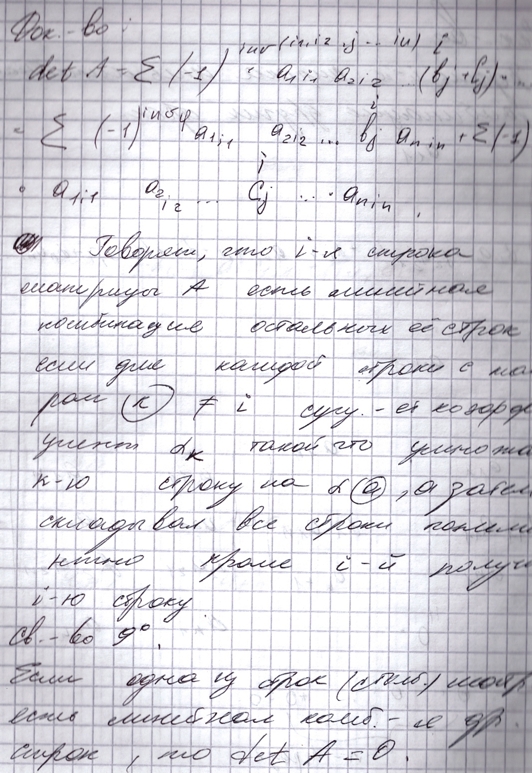 Док.-во:
inv(i1 i2 .. j ... in) i
det A = Σ (-1) · a1i1 a2i2 ... (bj + cj) ...
i
= Σ (-1)^inv a1i1 a2i2 ... bj anin + Σ (-1)
i
· a1i1 a2i2 ... cj ... anin,
Говорят, что i-я строка
матрицы A есть линейная
комбинация остальных её строк
если для каждой строки с но
ром k ≠ i сущ.-ет коэффи
циент αk такой что умножа
к-ю строку на α , а затем
складывая все строки поэлем
нтно кроме i-й получ
i-ю строку.
Св.-во 9°.
Если одна из строк (столб.) матр
есть линейная комб.-я др.
строк, то det A = 0.